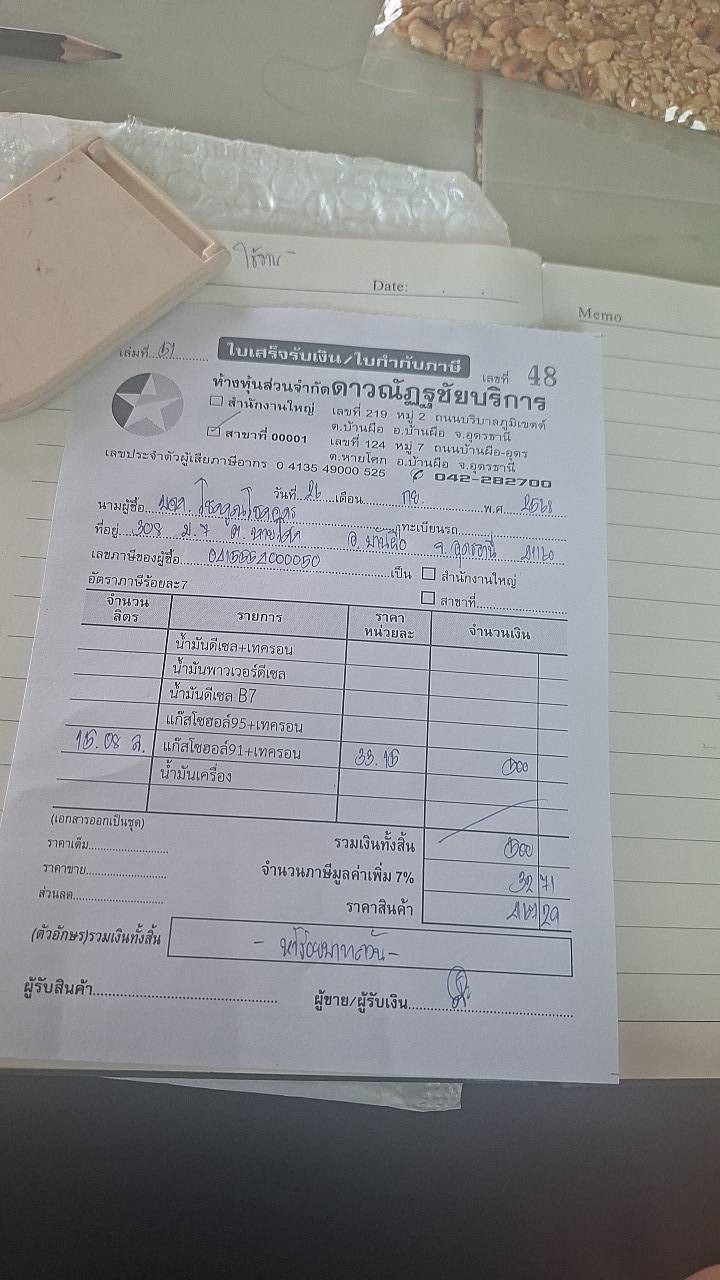 ใช้งาน
Date:
Memo
เล่มที่ 51
ใบเสร็จรับเงิน/ใบกำกับภาษี
เลขที่ 48
ห้างหุ้นส่วนจำกัดดาวณัฏฐชัยบริการ
สำนักงานใหญ่ เลขที่ 219 หมู่ 2 ถนนบริบาลภูมิเขตต์
ต.บ้านผือ อ.บ้านผือ จ.อุดรธานี
สาขาที่ 00001 เลขที่ 124 หมู่ 7 ถนนบ้านผือ-อุดร
ต.หายโศก อ.บ้านผือ จ.อุดรธานี
เลขประจำตัวผู้เสียภาษีอากร 0 4135 49000 525 042-282700
วันที่ 26 เดือน กย. พ.ศ. 2568
นามผู้ซื้อ ทะเบียนรถ
ที่อยู่ 308 ม.7 ต.หายโศก อ.บ้านผือ จ.อุดรธานี 41160
เลขภาษีของผู้ซื้อ 0415551000050 เป็น สำนักงานใหญ่
อัตราภาษีร้อยละ7 สาขาที่
จำนวนลิตร รายการ ราคาหน่วยละ จำนวนเงิน
น้ำมันดีเซล+เทครอน
น้ำมันพาวเวอร์ดีเซล
น้ำมันดีเซล B7
แก๊สโซฮอล์95+เทครอน
15.08 ล. แก๊สโซฮอล์91+เทครอน 33.15 500
น้ำมันเครื่อง
(เอกสารออกเป็นชุด)
ราคาเต็ม รวมเงินทั้งสิ้น 500
ราคาขาย จำนวนภาษีมูลค่าเพิ่ม 7% 32 71
ส่วนลด ราคาสินค้า 467 29
(ตัวอักษร)รวมเงินทั้งสิ้น - ห้าร้อยบาทถ้วน -
ผู้รับสินค้า ผู้ขาย/ผู้รับเงิน